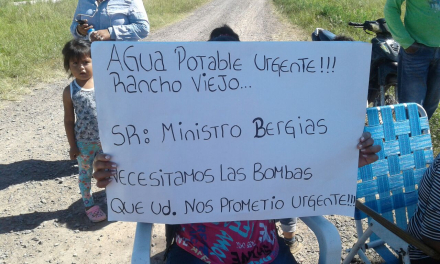 AGUA POTABLE URGENTE!!!
RANCHO VIEJO...
SR: MINISTRO BERGIAS
NECESITAMOS LAS BOMBAS
QUE UD. NOS PROMETIO URGENTE!!!